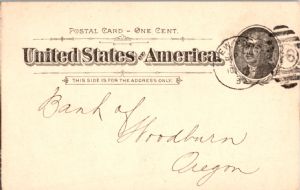 POSTAL CARD - ONE CENT.
United States of America.
THIS SIDE IS FOR THE ADDRESS ONLY.
Bank of
Woodburn
Oregon